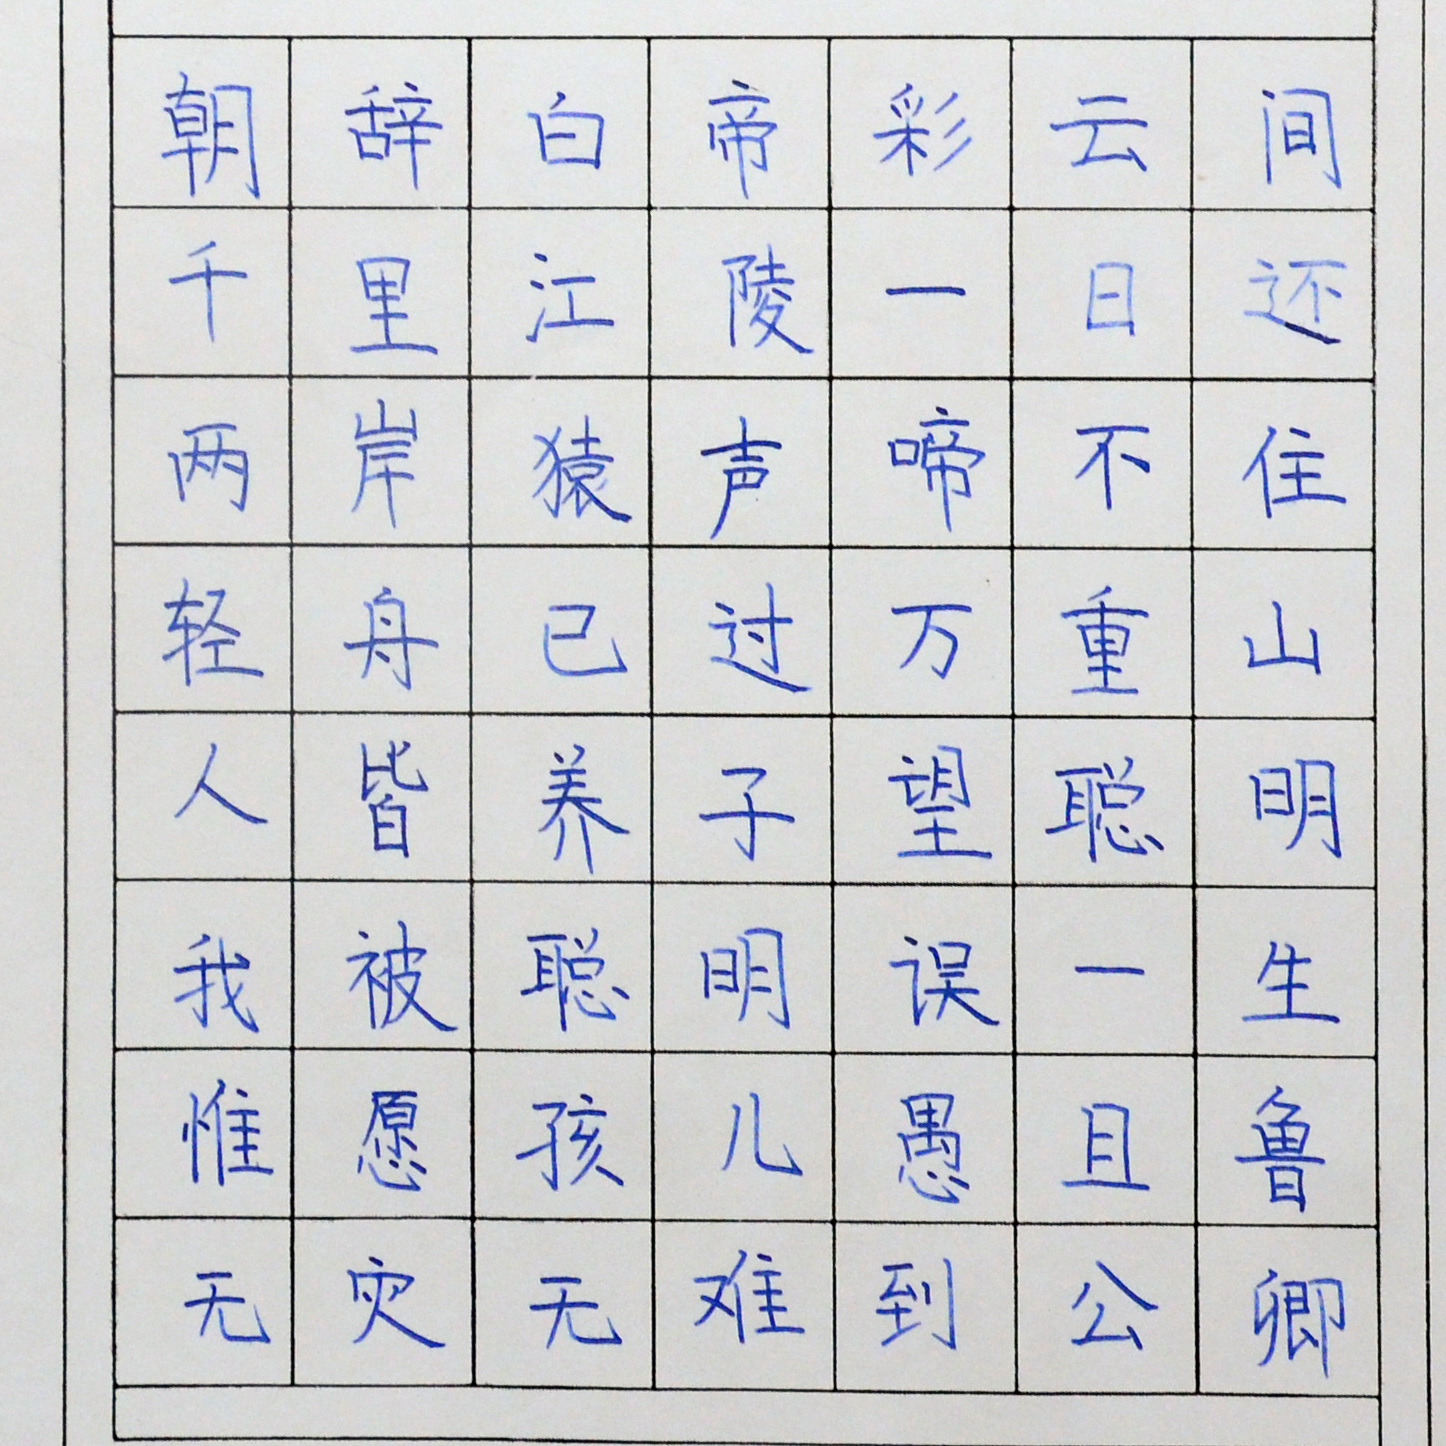 朝辞白帝彩云间
千里江陵一日还
两岸猿声啼不住
轻舟已过万重山
人皆养子望聪明
我被聪明误一生
惟愿孩儿愚且鲁
无灾无难到公卿